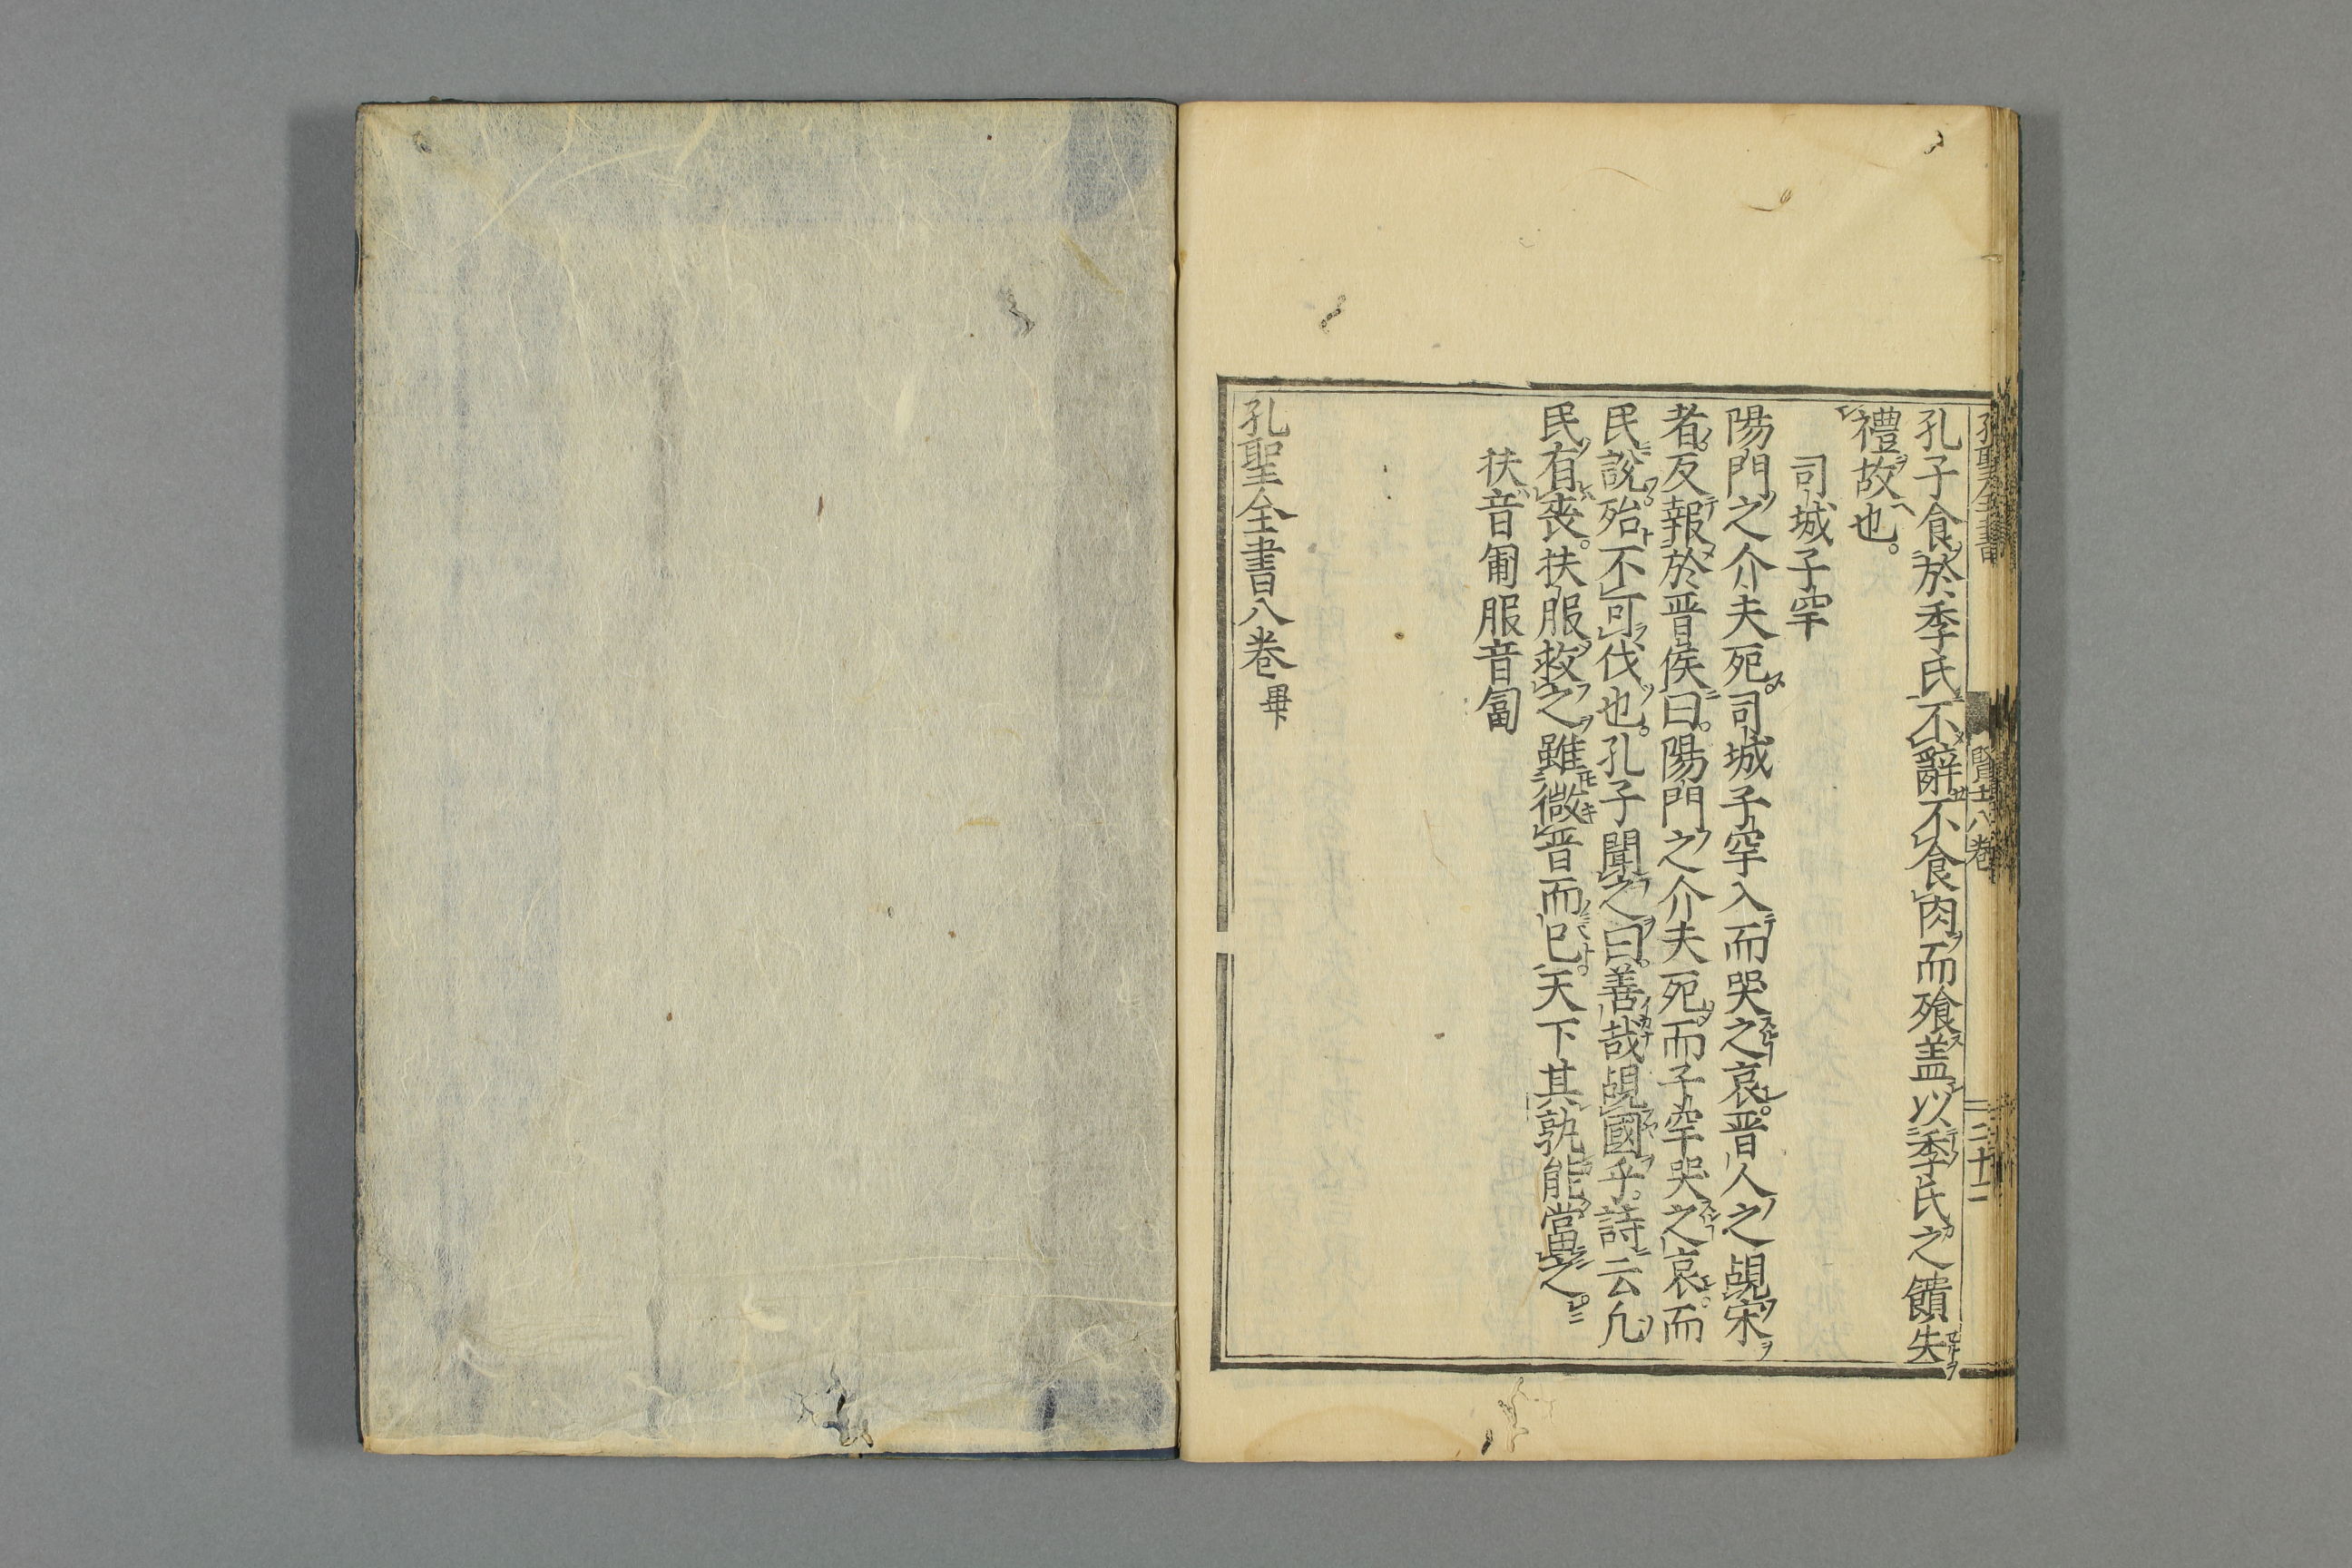 孔聖全書 賢士八卷 二十二
孔子食於季氏不辭不食肉而飱盖以季氏之饋失
禮故也。
司城子罕
陽門之介夫死司城子罕入而哭之哀。晋人之覘宋
者。反報於晋侯曰。陽門之介夫死而子罕哭之哀。而
民說。殆不可伐也。孔子聞之曰。善哉覘國乎。詩云凢
民有喪。扶服救之雖微晋而巳。天下其孰能當之。
扶音匍服音匐
孔聖全書八卷畢